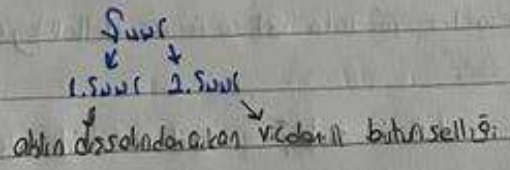 Şuur
1. Şuur 2. Şuur
aklın dışsalından akan vicdanın bütünselliği